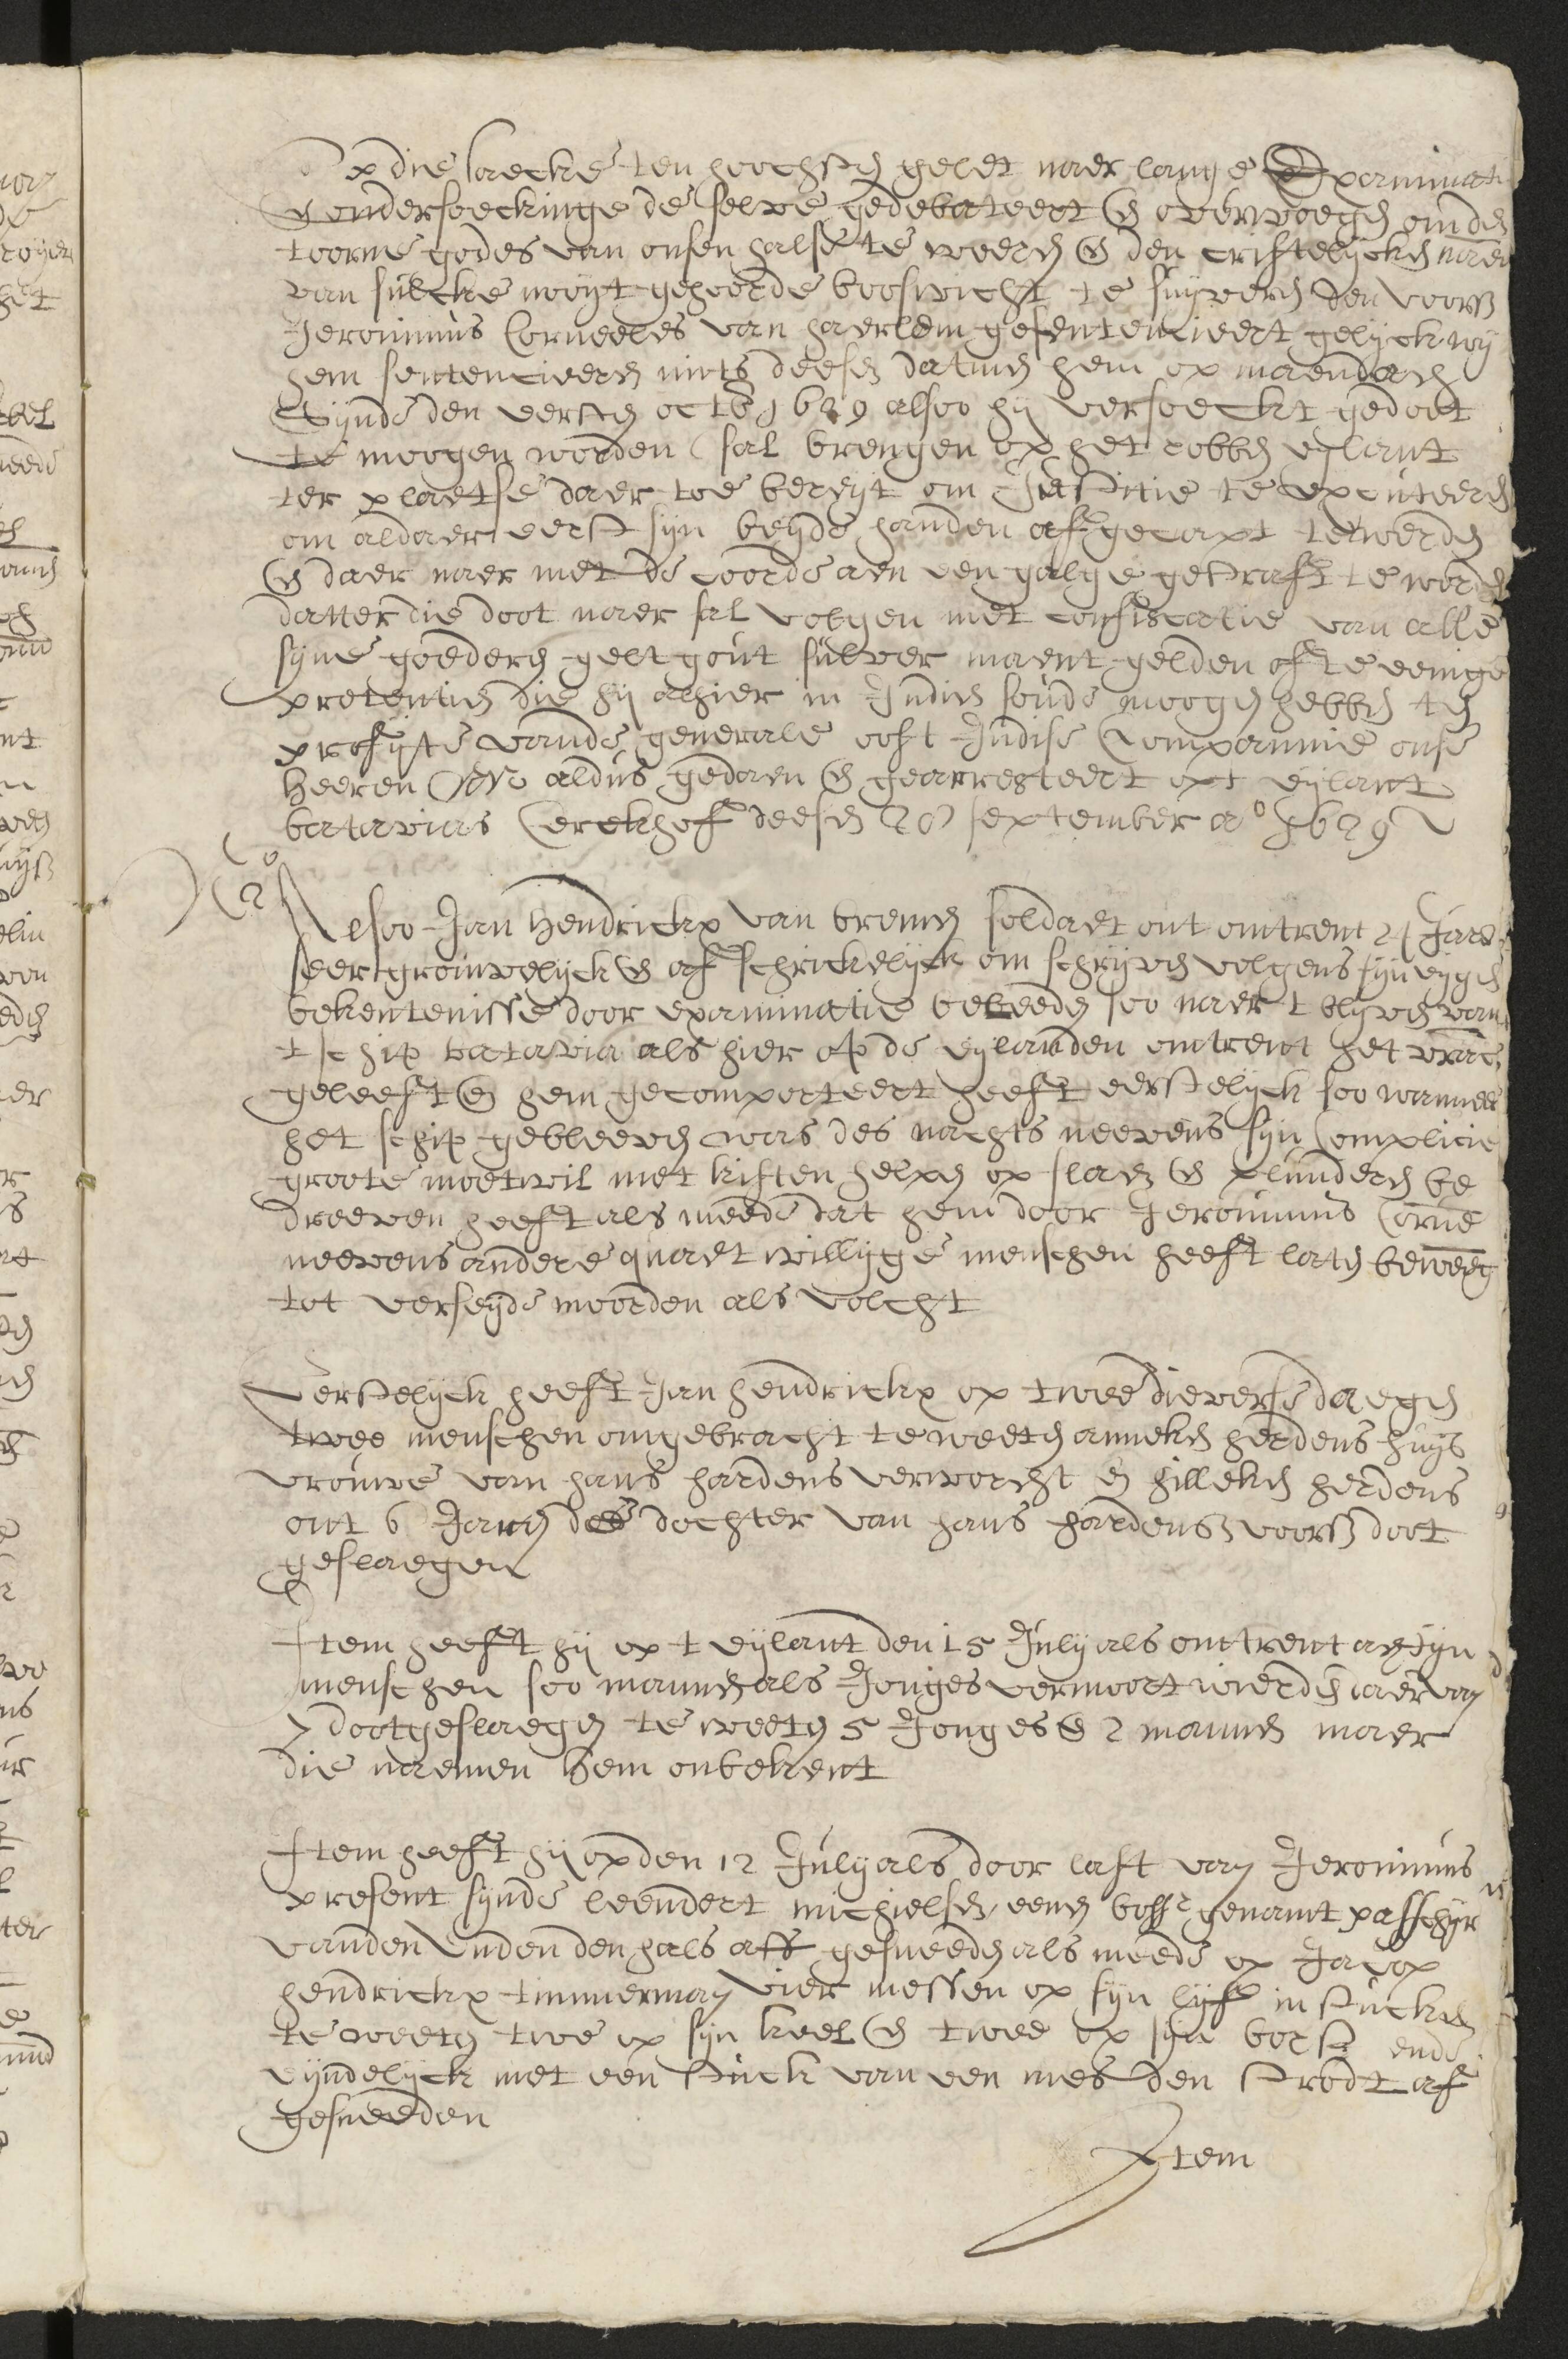 Op die saecke ten hoochsten gelet naer lange Examinati
en ondersoeckinge de selve gedebateert en overwoegen om den
toorne godes van onsen halse te weeren en den cristelycken naem
van sulcke nooyt gehoorde booswicht te suyveren Den voors
Jeronimus Corneeles van haerlem gesententieert gelyck wy
hem sententieeren mits deesen datmen hem op maendach
Synde den eersten octob 1629 alsoo hy versoeckt gedoet
te moogen worden sal brengen op het robben eylant
ter plaetse daer toe bereyt om Justitie te executeeren
om aldaer eerst syn beyde handen afgecapt te werden
en daer naer met de coorde aen een galge gestraft te worden
datter die doot naer sal volgen met confiscatie van alle
syne goederen gelt gout silver maent gelden ofte eenige
pretentien die hy alhier in Indien soude moogen hebben ten
profyte vande generale oost Indise Compannie onse
Heeren aldus gedaen en gearresteert opt eylant
batavias Cerckhof deesen 28 september ao 1629
2o
Alsoo Jan Hendrickx van bremen soldaet out omtrent 24 Jaer
seer grouwelyck en afschrickelyck om schryven volgens syn eygen
bekentenisse door examinatie beleeden soo naer t blyven van
t schip batavia als hier op de eylanden omtrent het wrac
geleeft en hem gecomporteert heeft eerstelyck soo wanneer
het schip gebleeven was des nachts neevens syn Complicie
groote moetwil met kisten helpen op slaen en plunderen be
dreeven heeft als meede dat hem door Jeronimus Corne
neevens andere quaetwillyge menschen heeft laten beweeg
tot verseyde moorden als volcht
Eerstelyck heeft Jan hendrickx op twee dieverse daegen
twee menschen omgebracht te weeten anneken herdens huys
vrouwe van hans hardens verworcht en hilleken herdens
out 6 Jaren dee dochter van hans hardens voors doot
geslaegen
Item heeft hy op t eylant den 15 July als omtrent achtyn
menschen soo mannen als Jonges vermoort wierden daer van
7 dootgeslaegen te weeten 5 Jonges en 2 mannen maer
die naemen hem onbekent
Item heeft hy op den 12 July als door last van Jeronimus
present synde leendert michielsen eenen bossr genamt passchyr
vanden Enden den hals aff gesneeden als meede op Jacop
hendrickx timmerman vier messen op syn lyf in stucken
te weeten twe op syn keel en twee op syn borst ende
eyndelyck met een stuck van een mes den strodt af
gesneeden
Item